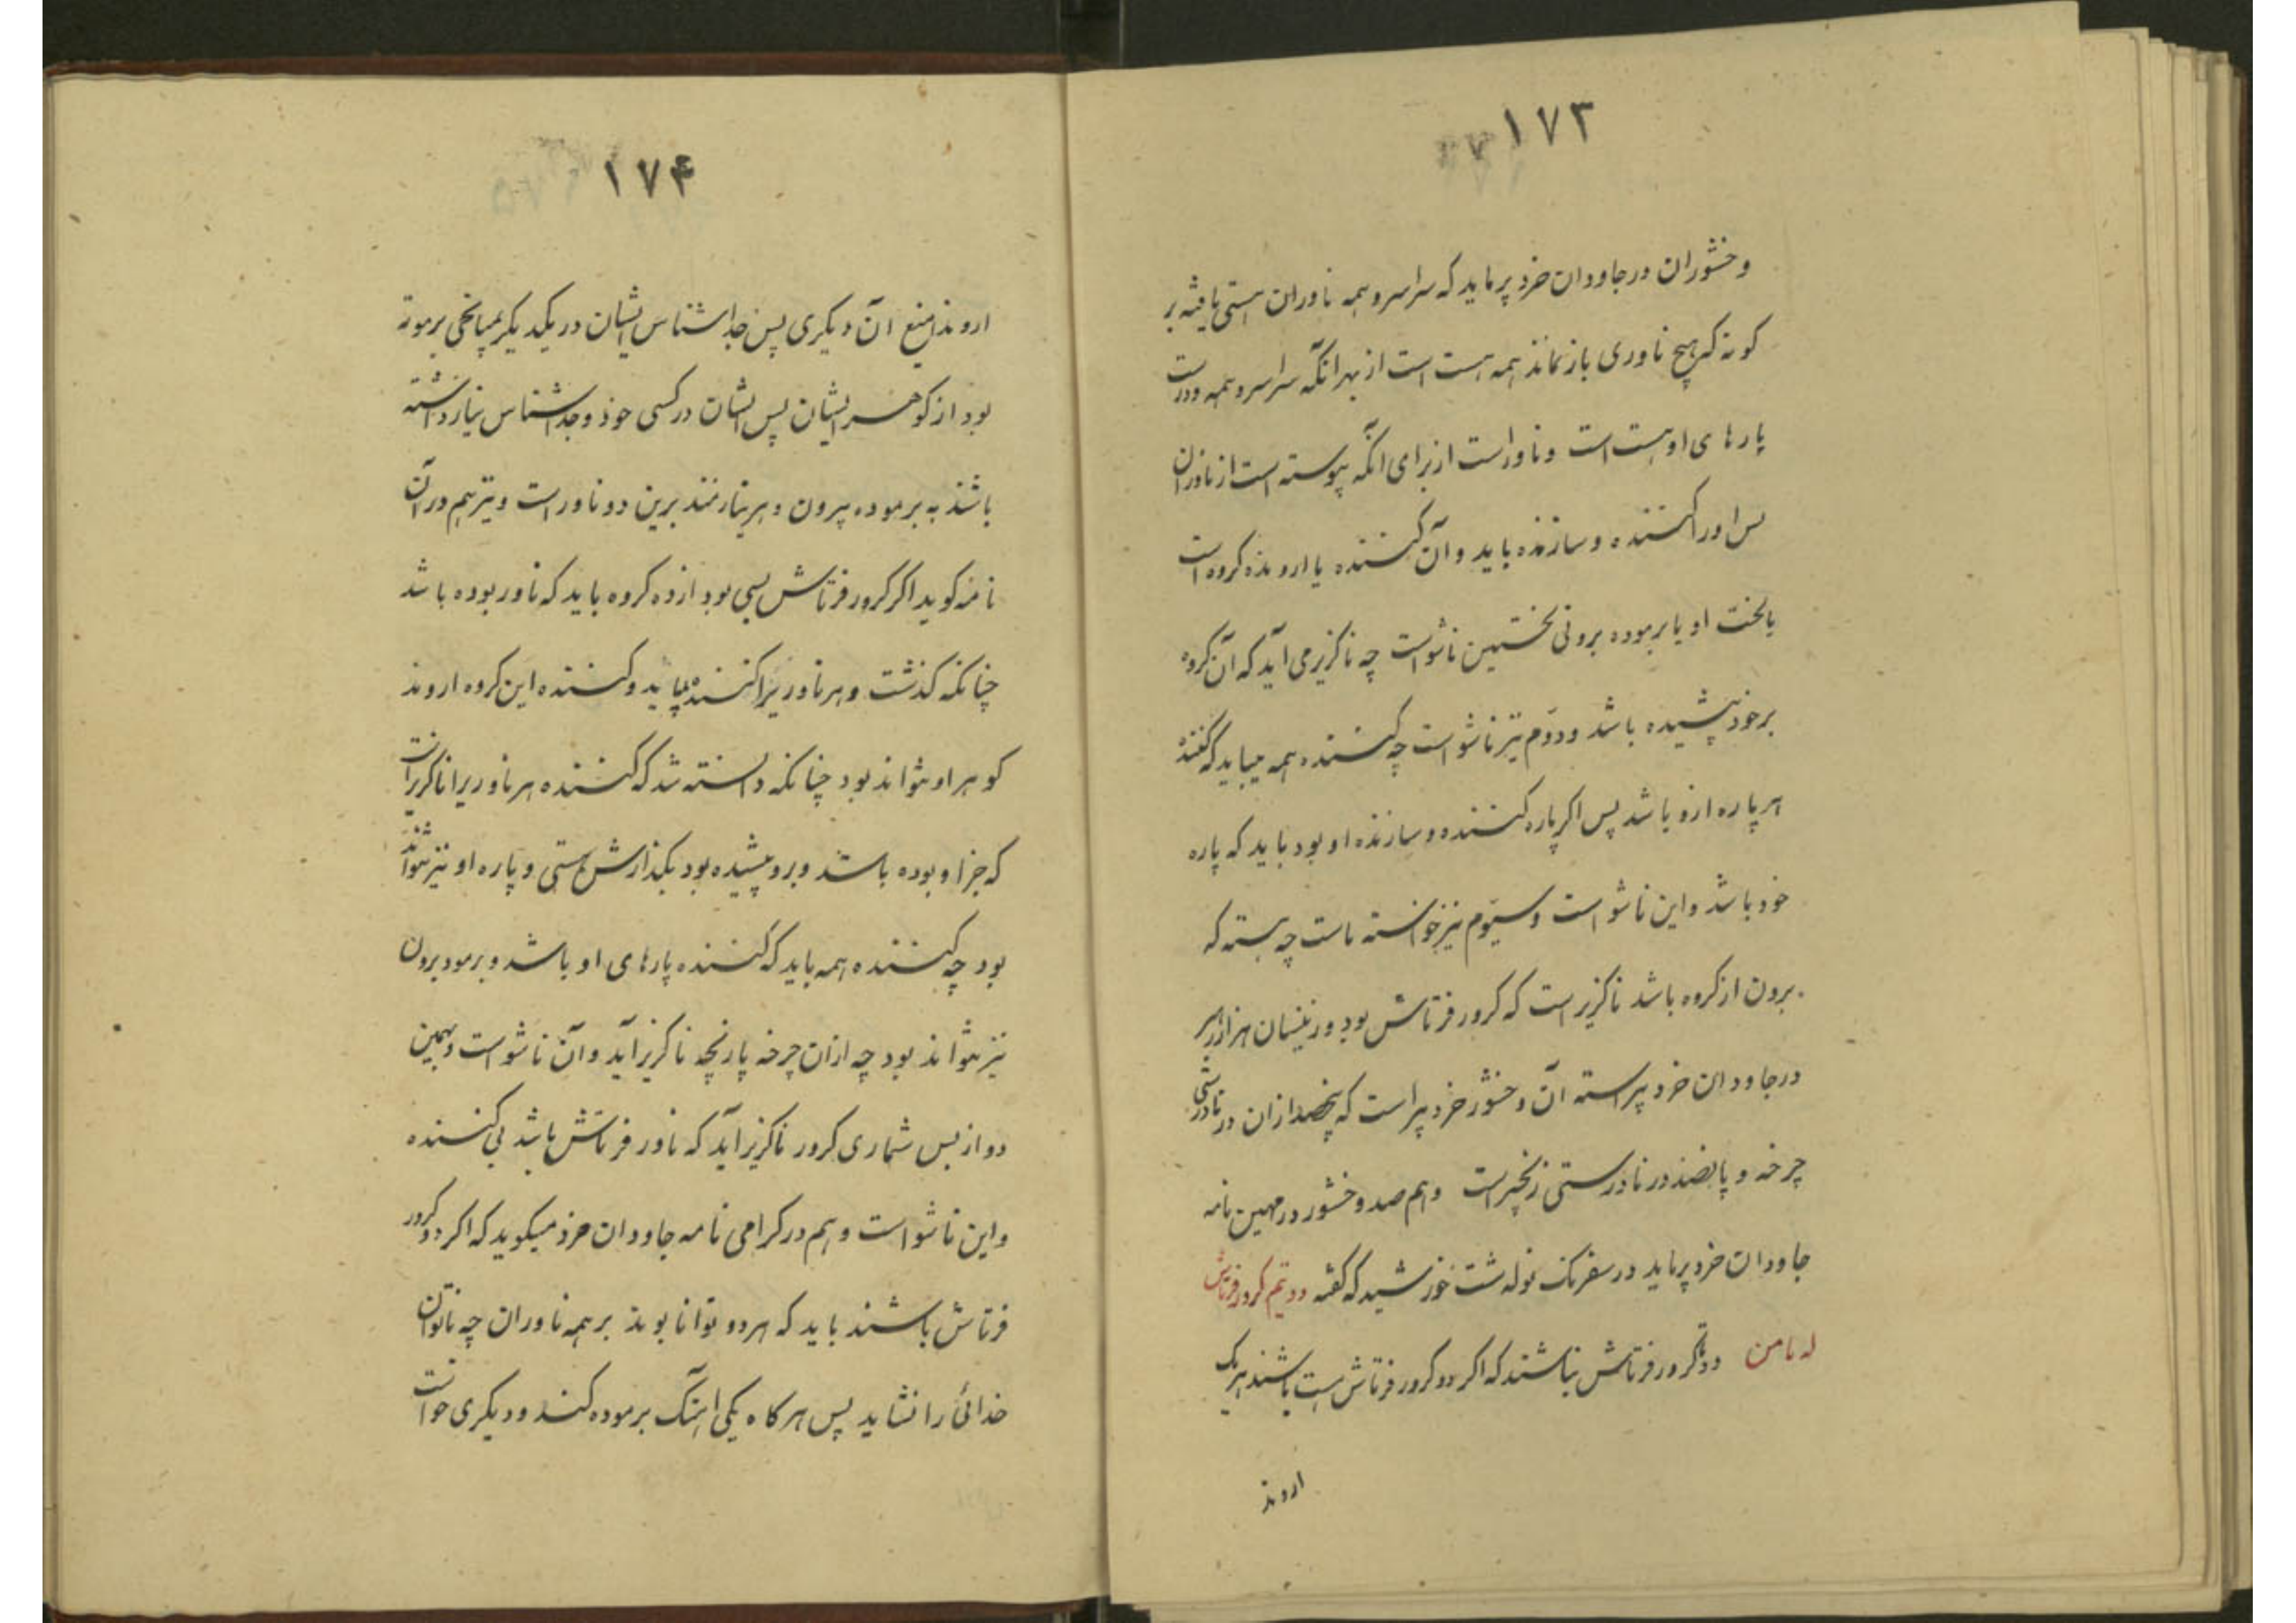 ۱۷۳
وخشوران در جاودان خرد پرماید که سراسر و همه ناوران هستی یافته بر
کونه که هیچ ناوری باز نماند همه هست است از بهر آنکه سراسر و همه درست
پارهای او هست است و ناور است از برای آنکه پیوسته است از ناوران
پس او را کننده و سازنده باید و آن کننده یا اروند کروه است
یا لخت او یا برموده برونی نخستین ناشو است چه ناکزیر می آید که آن کروه
برخود پیشیده باشد و دوم نیز ناشو است چه کننده همه میباید که کننده
هر پاره ازو باشد پس اگر پاره کننده و سازنده او بود باید که پاره
خود باشد و این ناشو است و سیوم نیز خواسته ماست چه هسته که
برون از کروه باشد ناکزیر است که کرور فرتاش بود و زینسان هزار رهبر
در جاودان خرد پیراسته آن وخشور خرد پیراست که پنجصد ازان در نادرستی
چرخه و پانصد در نادرستی زنجیر است وهم صد وخشور در مهین نامه
جاودان خرد پرماید در سفرنک نوله شت خورشید که گفته دو نیم کرور فرتاش
له نامن دو کرور فرتاش نباشند که اگر دو کرور فرتاش هست باشند هر یک
اروند
۱۷۴
اروند امنیع آن دیکری پس جدا شناس ایشان در یکدیکر بمیانجی برموته
بود از کوهر ایشان پس ایشان در کسی خود و جدا شناس نیاز داشته
باشند به برموده بیرون و هر نیازمند برین دو ناور است و نیز هم در آن
نامه کوید اگر کرور فرتاش بسی بود ازده کروه باید که ناور بوده باشد
چنانکه کذشت و هر ناور یرا کننده بباید و کننده این کروه اروند
کوهر او نتواند بود چنانکه دانسته شد که کننده هر ناور یرا ناکزیر است
که جز او بوده باشد و برو پیشیده بود بکذارش هستی و پاره او نیز نتواند
بود چه کننده همه باید که کننده پارهای او باشد و برمود برون
نیز نتواند بود چه ازان چرخه یا زنجیره ناکزیر آید و آن ناشو است و بهمین
دو از بس شماری کرور ناکزیر آید که ناور فرتاش باشد بی کننده
و این ناشو است و هم در کرامی نامه جاودان خرد میکوید که اگر دو کرور
فرتاش باشند باید که هر دو توانا بوند بر همه ناوران چه ناتوان
خدائی را نشاید پس هر کاه یکی آهنک برموده کند و دیکری خواست